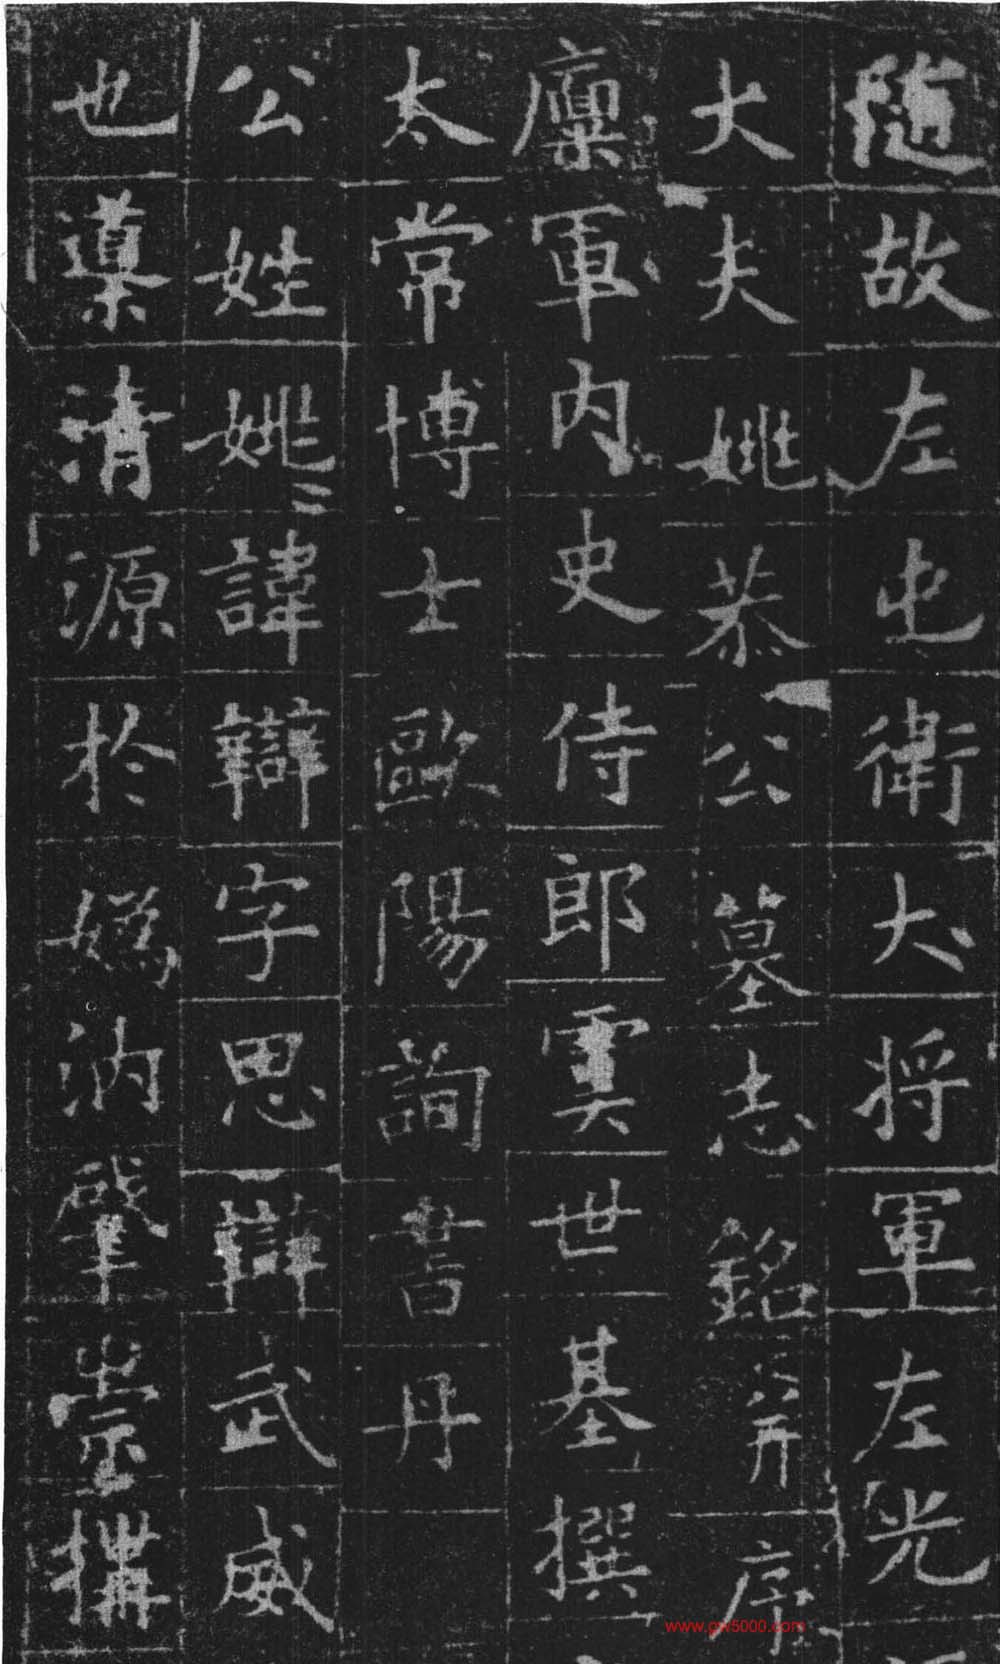 隨故左屯衛大將軍左光
大夫姚恭公墓志銘并序
稟軍內史侍郎虞世基撰
太常博士歐陽詢書丹
公姓姚〻諱辯字思辯武威
也導清源於媯汭肇崇構
www.gw5000.com